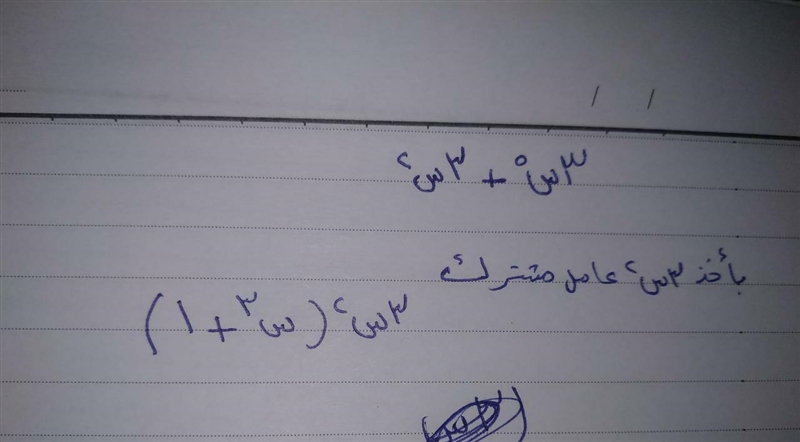 ٣س⁵ + ٣س²
بأخذ ٣س² عامل مشترك
٣س² (س³ + ١)